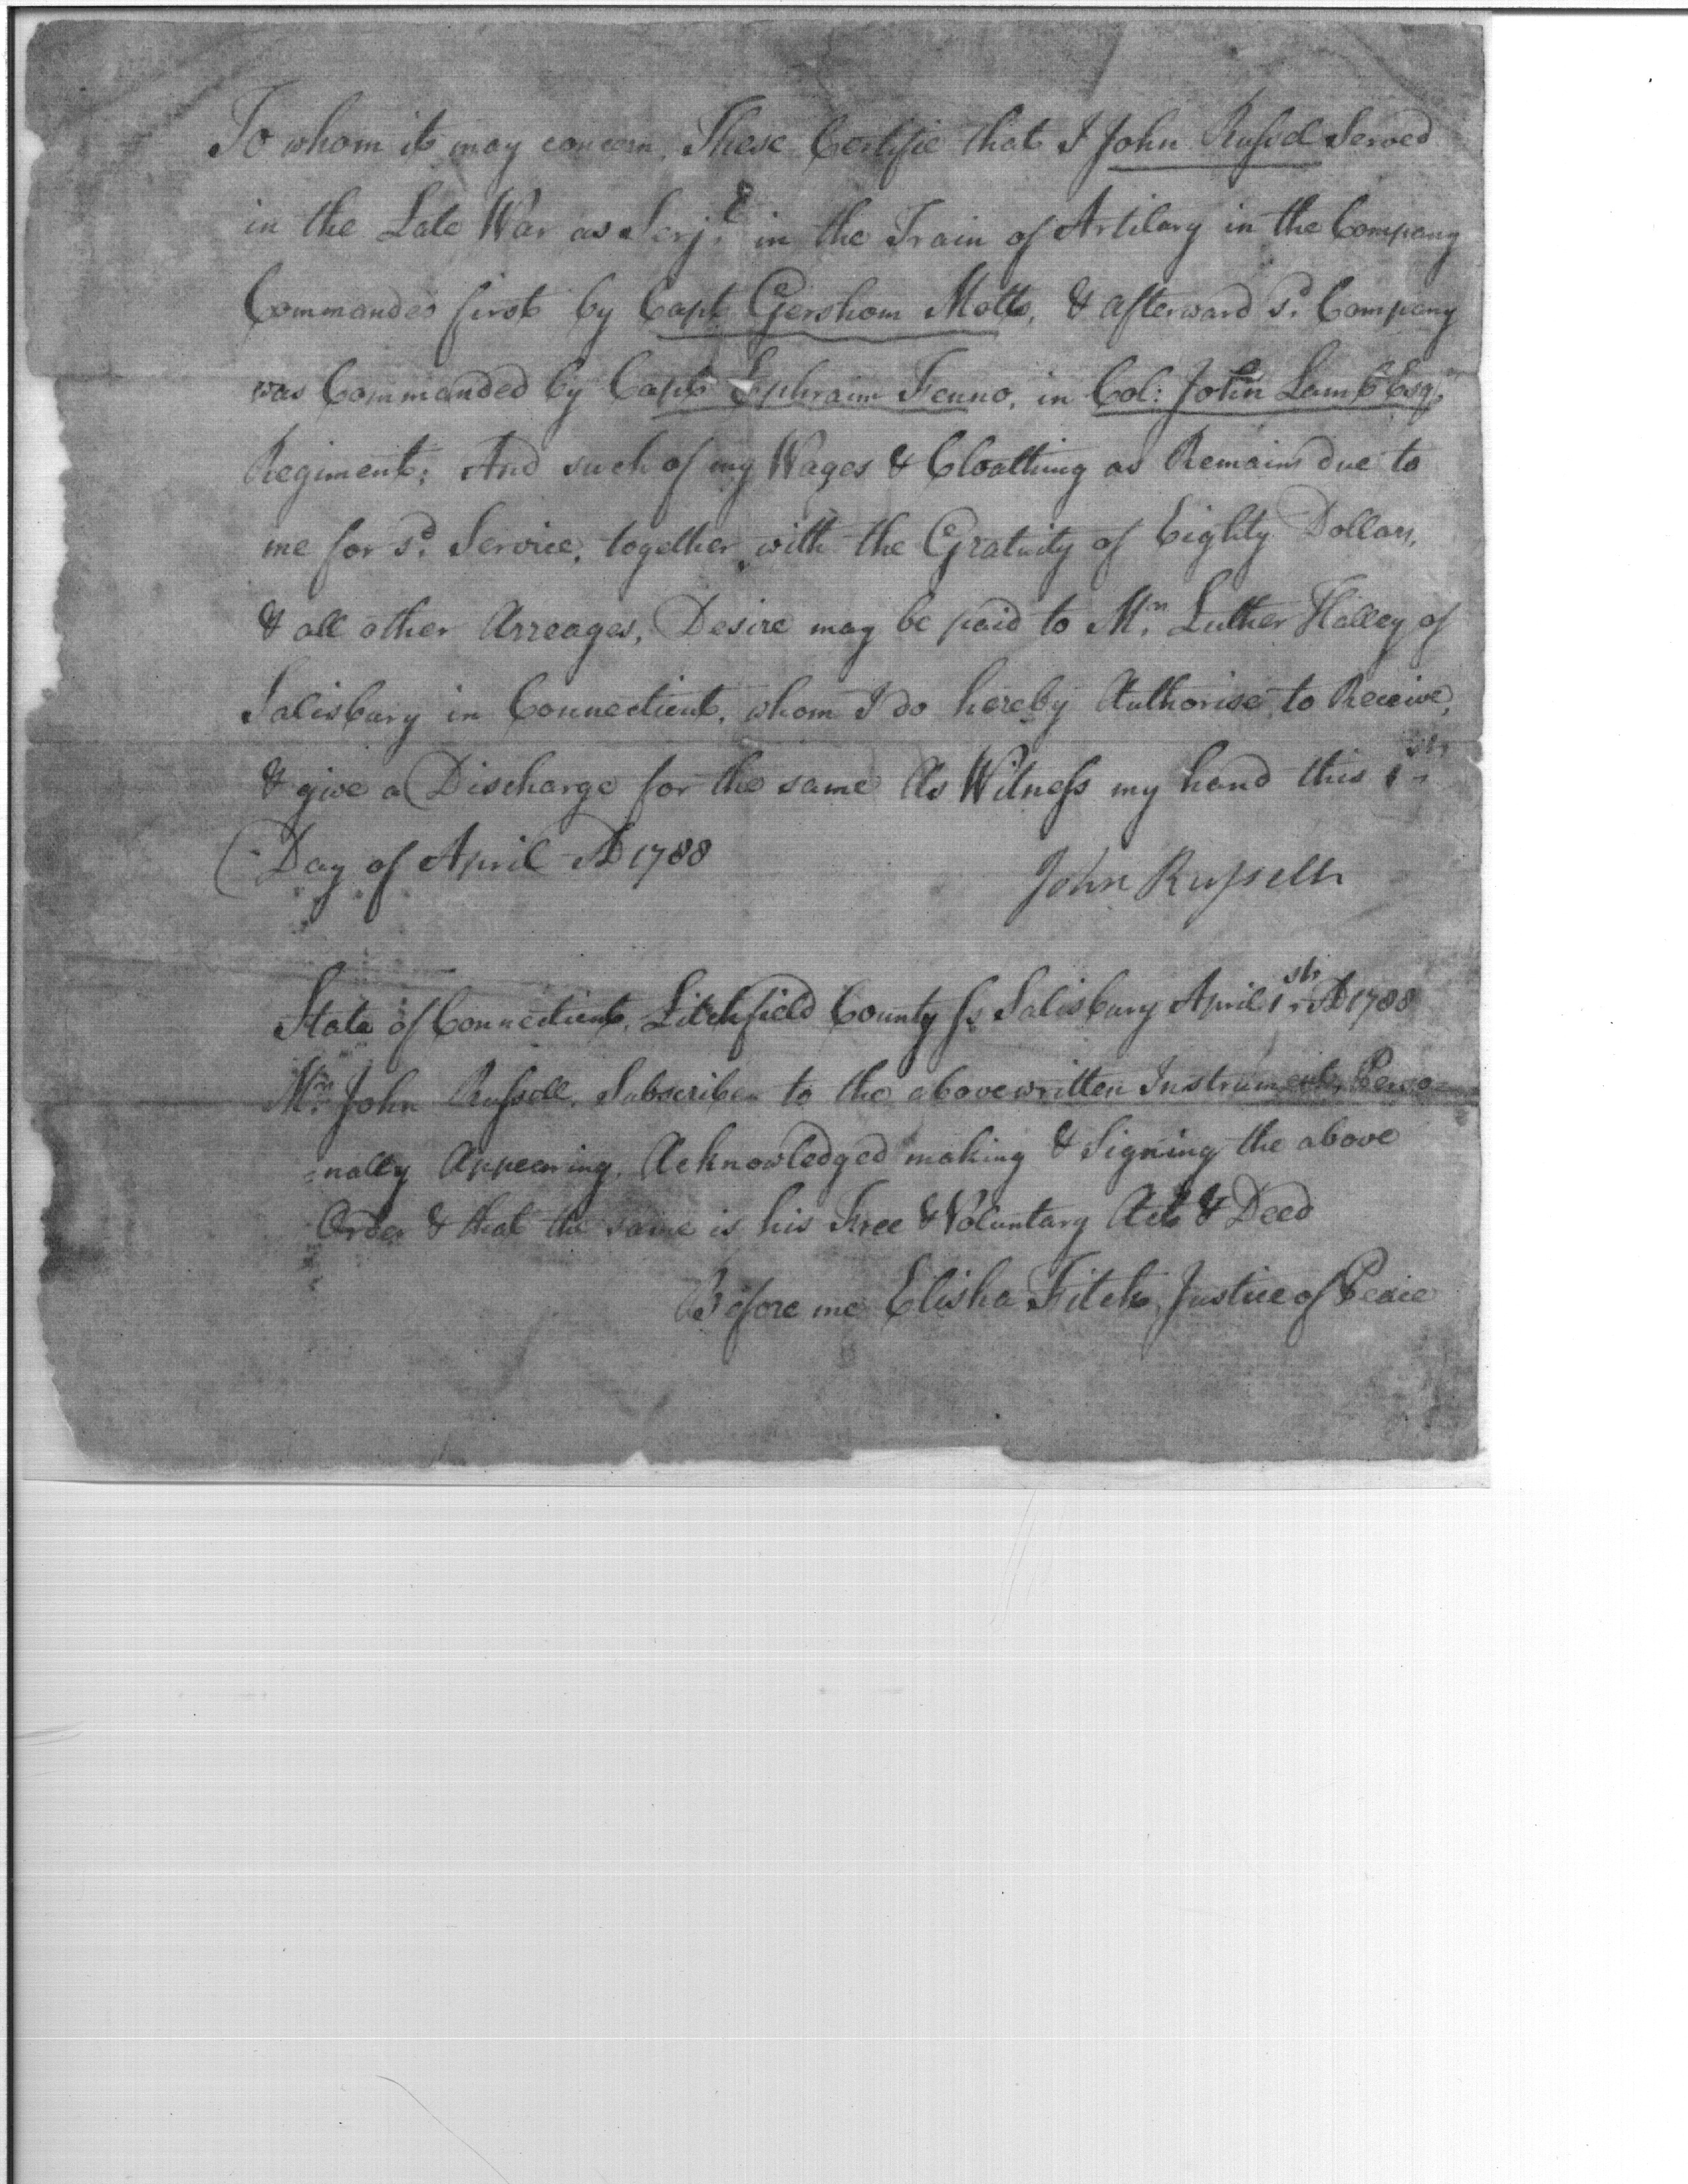 To whom it may concern. These Certifie that I John Russel Served
in the Late War as Serjt. in the Train of Artilary in the Company
Commanded first by Capt Gershom Mott, & afterward sd. Company
was Commanded by Capt Ephraim Fenno, in Col: John Lamb Esqr.
Regiment; And such of my Wages & Cloathing as Remains due to
me for sd. Service, together with the Gratuity of Eighty Dollars,
& all other Arreages, Desire may be paid to Mr. Luther Halley of
Salisbury in Connecticut, whom I do hereby Authorise to Receive,
& give a Discharge for the same As Witness my hand this 1st
Day of April AD 1788
John Russell
State of Connecticut, Litchfield County ss Salisbury April 1st AD 1788
Mr. John Russell, Subscriber to the abovewritten Instrument, Perso=
=nally Appearing, Acknowledged making & Signing the above
Order & that the same is his Free & Voluntary Act & Deed
Before me Elisha Fitch, Justice of Peace